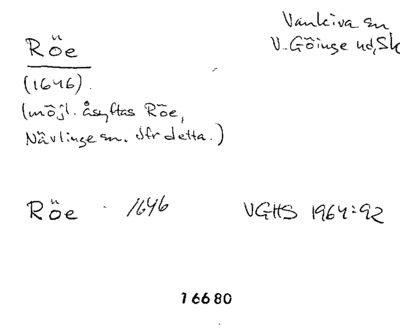 Vankiva sn
V. Göinge hd, Sk
Röe
(1646).
(möjl. åsyftas Röe,
Nävlinge sn. Jfr detta.)
Röe 1646 VGHS 1964:92
16680